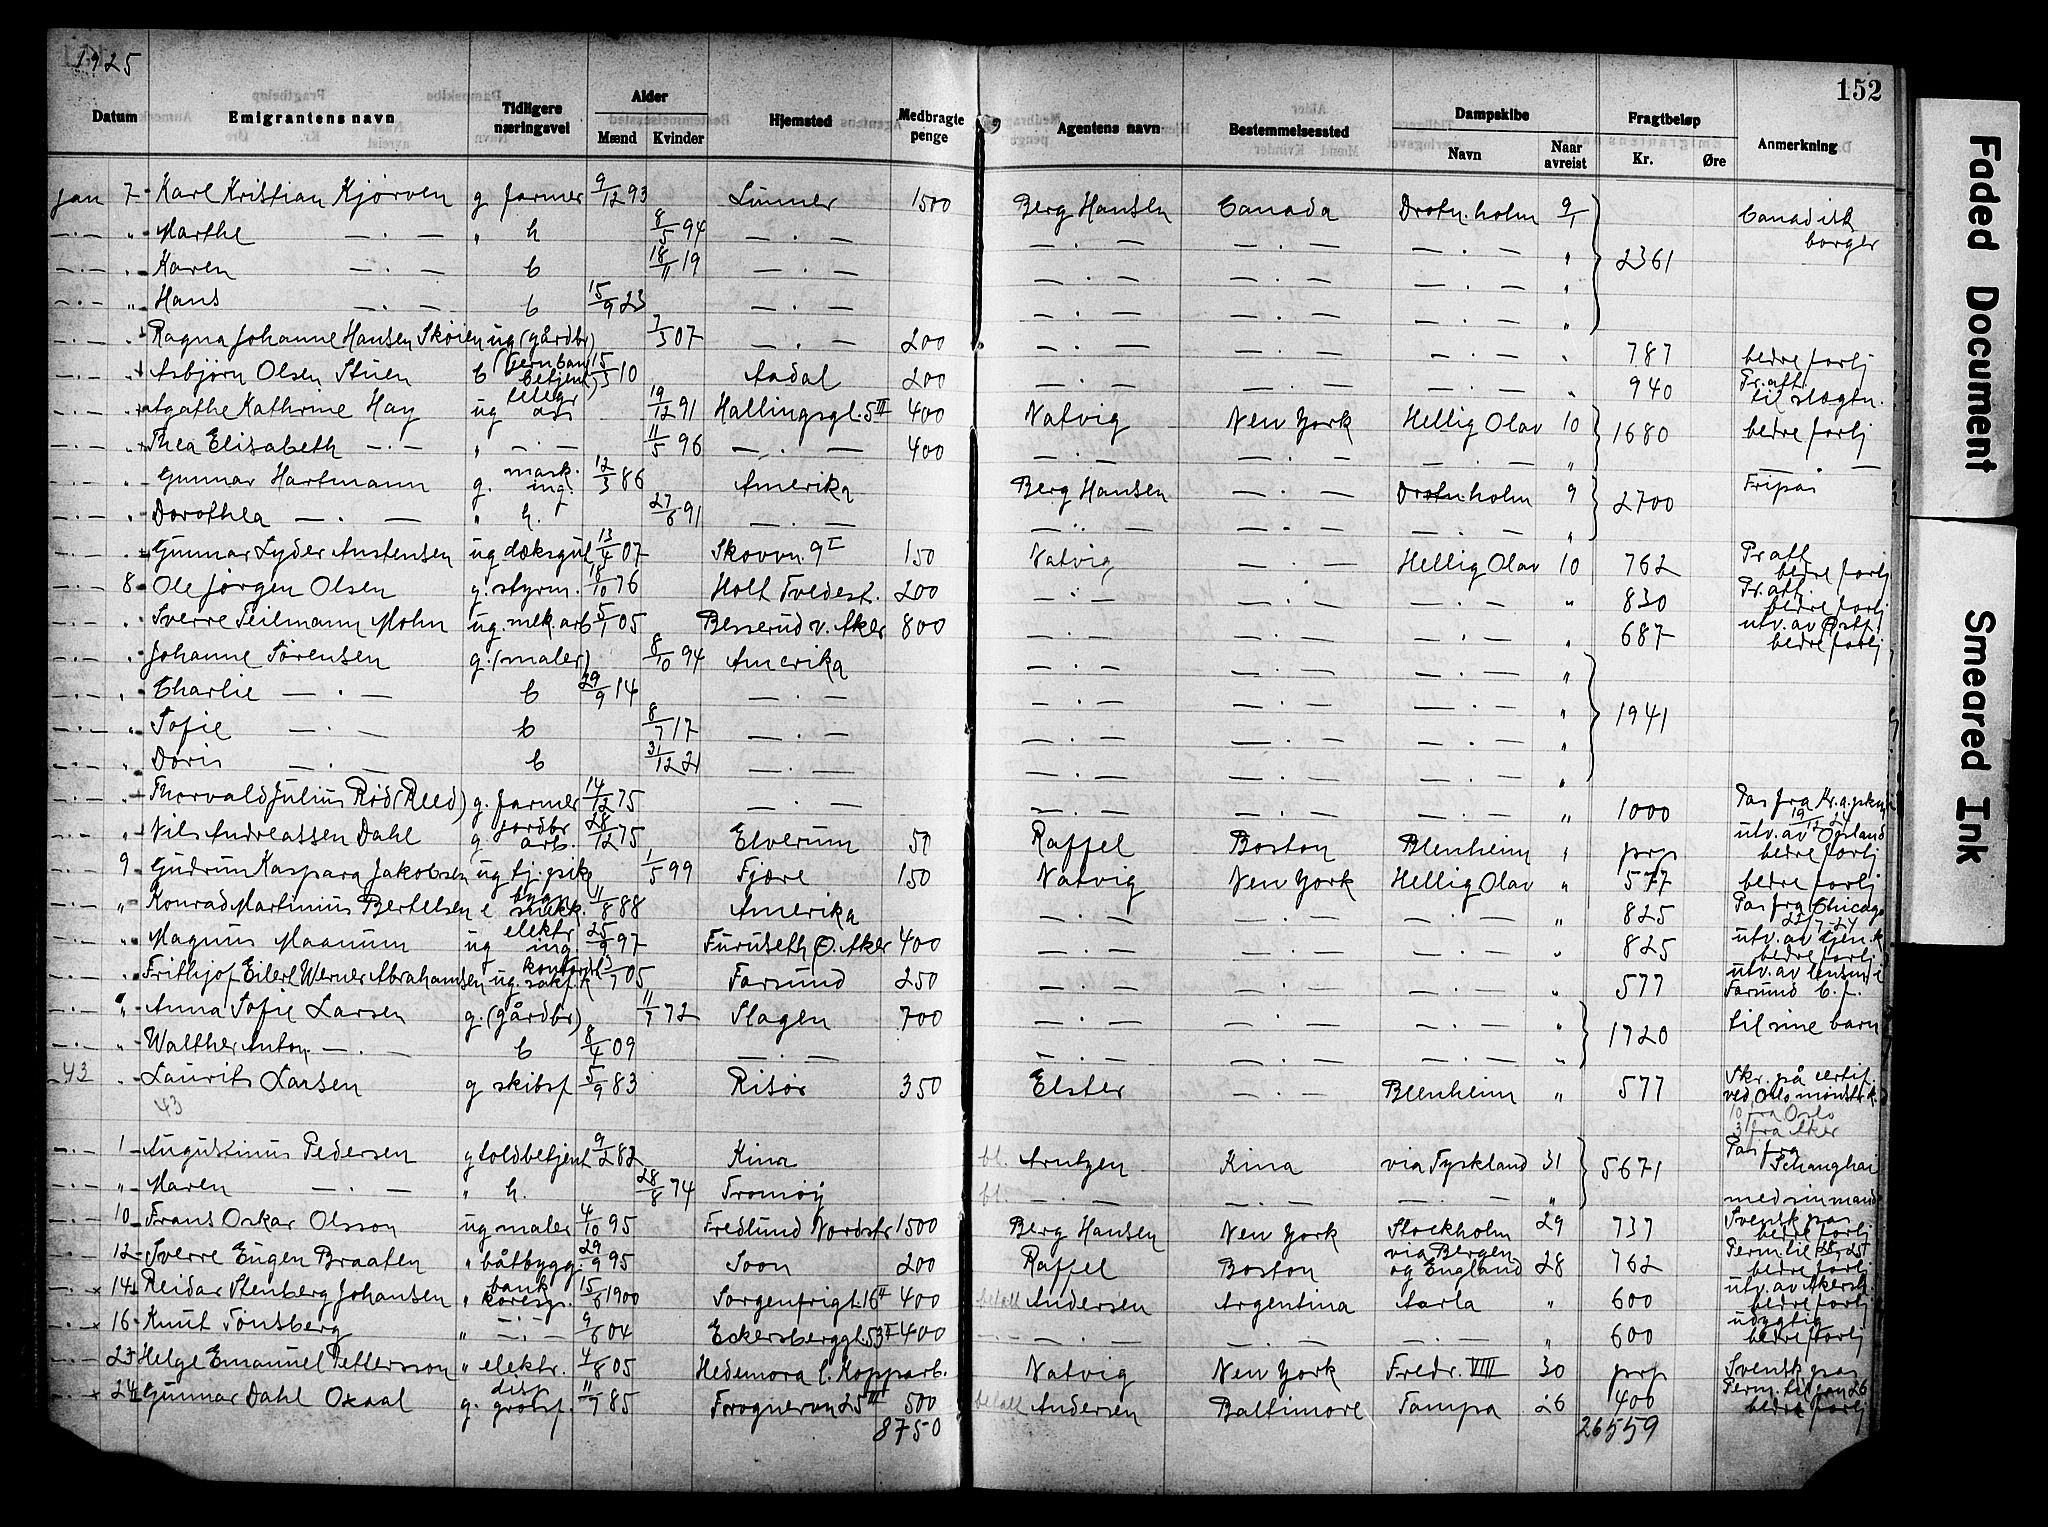 1925
152
Datum Emigrantens navn Tidligere næringsvei Alder Mænd Kvinder Hjemsted Medbragte penge Agentens navn Bestemmelsessted Dampskibe Navn Naar avreist Fragtbeløp Kr. Øre Anmerkning
Jan 7 Karl Kristian Kjørven g farmer 9/12 93 Lunner 1500 Berg Hansen Canada Drotn.holm 9/1 Canadisk borger
" Marthe — . — " h 8/5 94 — . — — . — — . — — . — "
" Karen — . — b 18/11 19 — . — — . — — . — — . — " 2361
" Hans — . — b 15/9 23 — . — — . — — . — — . — "
" Ragna Johanne Hansen Skøien ug (gårdbr) 7/3 07 — . — 200 — . — — . — — . — " 787 bedre forlj
" Asbjørn Olsen Stuen b (Jernban betjent) 15/3 10 Aadal 200 — . — — . — — . — " 940 Fr. att. til slægtn.
" Agathe Kathrine Hay ug telegr ass 19/12 91 Hallingsgt. 5 III 400 Natvig New York Hellig Olav 10 1680 bedre forlj
" Thea Elisabeth — . — " — . — 11/5 96 — . — 400 — . — — . — — . — " — . —
" Gunnar Hartmann g. mask. ing. 12/3 86 Amerika Berg Hansen — . — Drotn.holm 9 2700 Fripas
" Dorothea — . — " h. 27/6 91 — . — — . — — . — — . — "
" Gunnar Lyder Austensen ug dæksgut 13/4 07 Skovvn 9 I 150 Natvig — . — Hellig Olav 10 762 Fr. att bedre forlj
8 Ole Jørgen Olsen g. styrm. 18/10 76 Holt Tvedest. 200 — . — — . — — . — " 830 Fr. att. bedre forlj
" Sverre Teilmann Mohn ug. mek. arb 5/1 05 Besserud v. Aker 800 — . — — . — — . — " 687 utv. av Østf. bedre forlj
" Johanne Sørensen g. (maler) 8/10 94 Amerika — . — — . — — . — "
" Charlie — . — b 29/9 14 — . — — . — — . — — . — " 1941
" Sofie — . — b 8/7 17 — . — — . — — . — — . — "
" Doris — . — b 31/12 21 — . — — . — — . — — . — "
" Thorvald Julius Rød (Reed) g. farmer 14/12 75 — . — — . — — . — — . — " 1000 Pas fra Kr.a 19/12 24
" Nils Andreassen Dahl g. jordbr arb. 28/12 75 Elverum 50 Raffel Boston Blenheim " prp utv. av Opland bedre forlj
9 Gudrun Kaspara Jakobsen ug tj. pike 1/5 99 Fjære 150 Natvig New York Hellig Olav " 577 bedre forlj
" Konrad Martinius Bertelsen e bygn. snekk. 11/8 88 Amerika — . — — . — — . — " 825 Pas fra Chicago 22/7-24
" Magnus Maanum ug elektr. ing. 25/9 97 Furuseth Ø. Aker 400 — . — — . — — . — " 825 utv. av bedre forlj
" Frithjof Eilert Werner Abrahamsen ug. kontorist 13/7 05 Farsund 250 — . — — . — — . — " 577 utv. av lensm i Farsund b. f.
" Anna Sofie Larsen g. (gårdbr) 11/7 72 Slagen 700 — . — — . — — . — " 1720 til sine barn
" Walther Anton — . — b 8/4 09 — . — — . — — . — — . — "
43 " Laurits Larsen g skibsf 5/9 83 Risør 350 Elster — . — Blenheim " 577 Skr. på certif. ved Oslo mønstr.k.
43 10 fra Oslo
3 fra Aker
1 Augustinus Pedersen g toldbetjent 9/2 82 Kina bl. Arntzen Kina via Tyskland 31 5671 Pas fra Schanghai
" Maren — . — " h. 28/8 74 Tromøy bl. — . — — . — — . — " med sin mand
10 Frans Oskar Olsson ug maler 4/10 95 Fredlund Nordstr 1500 Berg Hansen New York Stockholm 29 737 Svensk pas bedre forlj
12 Sverre Eugen Braaten " båtbygg. 29/9 95 Soon 200 Raffel Boston via Bergen og England 28 762 Perm. til bedre forlj
14 Reidar Stenberg Johansen " bank koresp. 15/6 1900 Sorgenfrigt. 16 II 400 betalt Andersen Argentina Aarla " 600 utv. av Akersh. bedre forlj
16 Knut Tønsberg " — . — 9/6 04 Eckersberggt. 53 I 400 — . — — . — — . — " 600 udygtig bedre forlj
23 Helge Emanuel Pettersson " elektr. 4/8 05 Hedemora l. Kopparb. Natvig New York Fredr. VIII 30 prp Svensk pas
24 Gunnar Dahl Oxaal g. disp grosf. 11/7 85 Frognervn 25 III 500 betalt Andersen Baltimore Tampa 26 400 Perm. til jan 26 bedre forlj
8750 26559
Faded Document
Smeared Ink